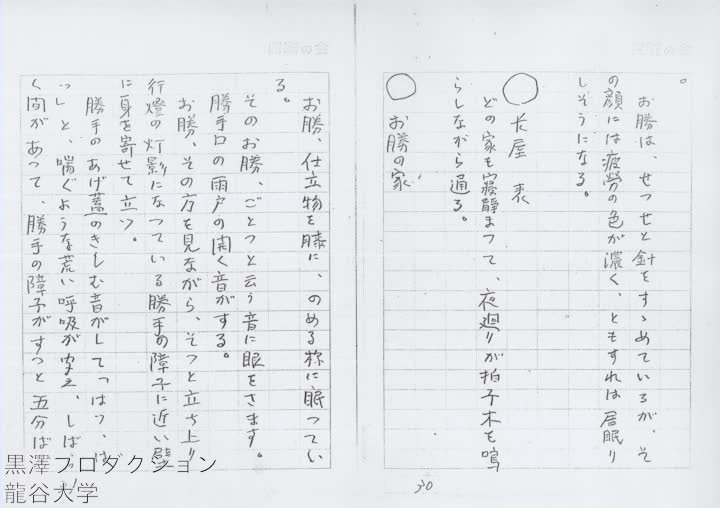 。
お勝は、せつせと針をすゝめているが、そ
の顔には疲労の色が濃く、ともすれは居眠り
しそうになる。
○ 長屋 表
どの家も寝静まつて、夜廻りが拍子木を鳴
らしながら通る。
○ お勝の家
30
お勝、仕立物を膝に、のめる様に眠つてい
る。
そのお勝、ごとつと云う音に眼をさます。
勝手口の雨戸の開く音がする。
お勝、その方を見ながら、そつと立ち上り
行燈の灯影になつている勝手の障子に近い壁
に身を寄せて立つ。
勝手のあげ蓋のきしむ音がしてつはッ、は
ッ」と、喘ぐような荒い呼吸が聞え、しばら
く間があつて、勝手の障子がすつと五分ば
黒澤プロダクション
龍谷大学